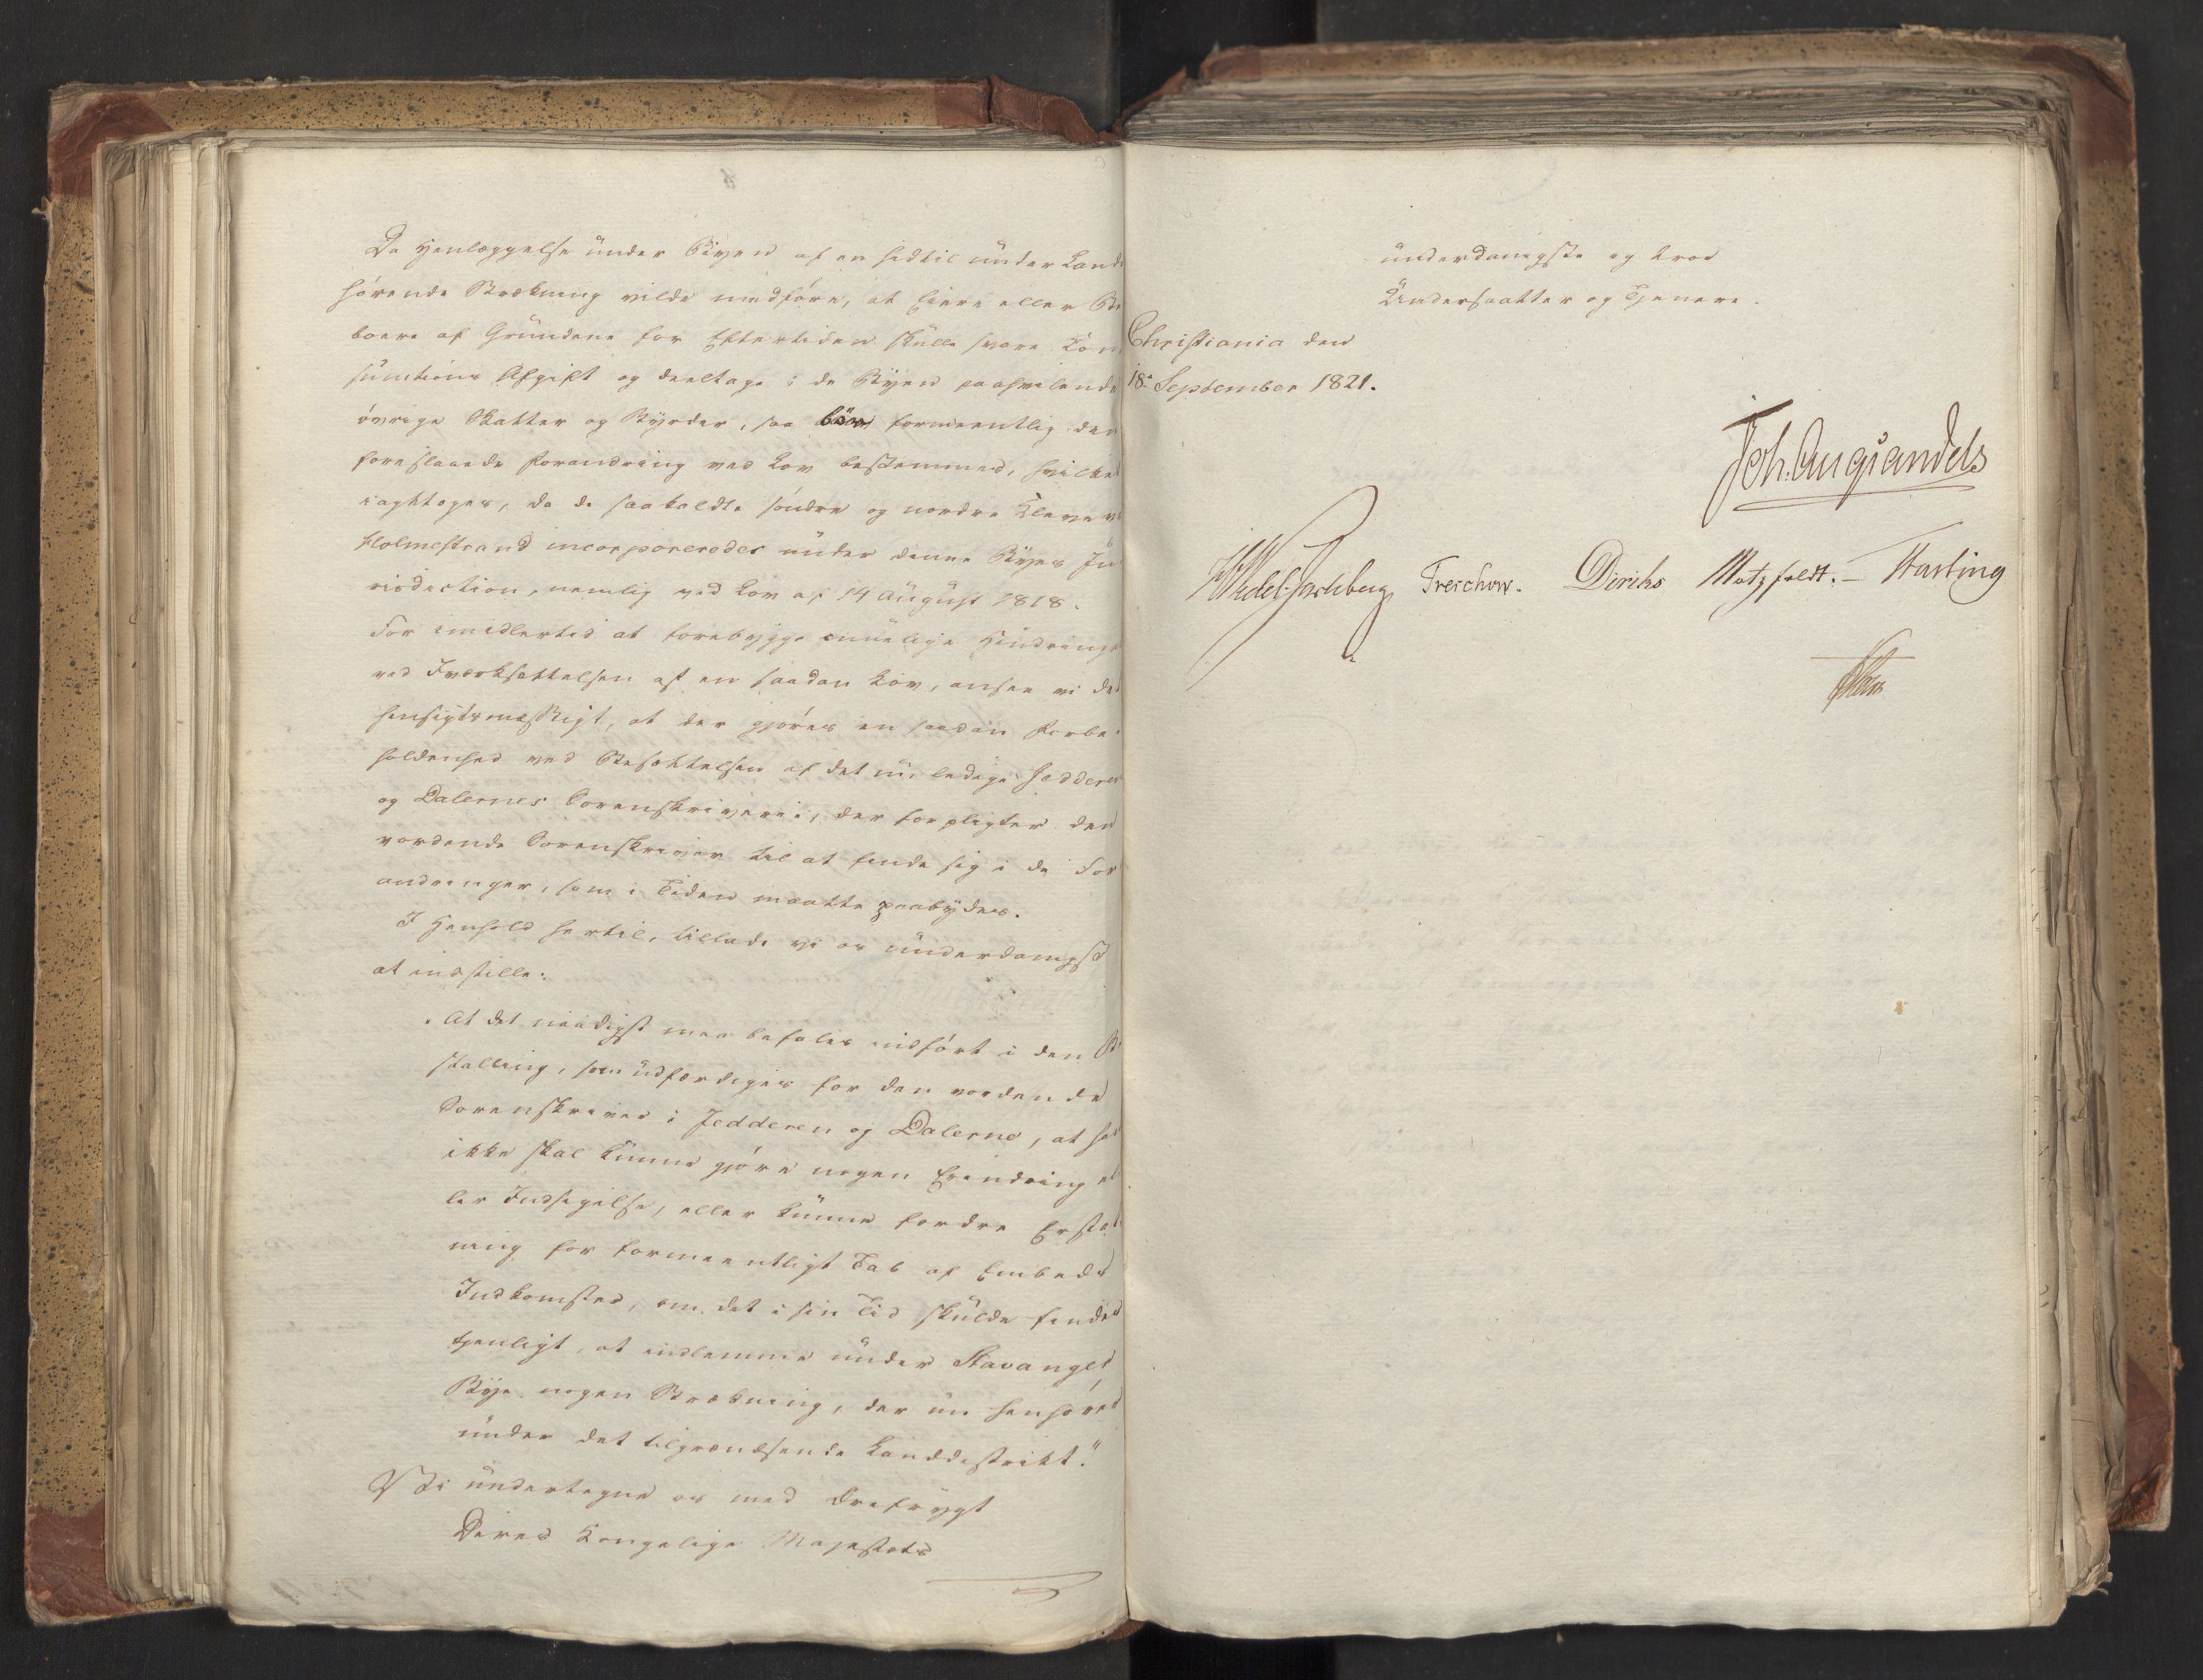 Da Henlæggelse under Byen af en hidtil under Land
hørende Strækning vilde medføre, at Eiere eller Be
boere af Grundene for Eftertiden skulle svare Con
sumtions Afgift og deeltage i de Byen paahvilende
øvrige Skatter og Byrder, saa bør formeentlig den
foreslaaede Forandring ved Lov bestemmes, hvilket
iagttoges, da de saakaldte søndre og nordre Kleve v
Holmestrand incorporeredes under denne Byes Ju
risdiction, nemlig ved Lov af 14 August 1818.
For imidlertid at forebygge muelige Hindringer
ved Iværksættelsen af en saadan Lov, ansee vi det
hensigtsmæssigt, at der gjøres en saadan Forbe-
holdenhed ved Besættelsen af det nu ledige Jedderen
og Dalernes Sorenskriverie, der forpligter den
vordende Sorenskriver til at finde sig i de For
andringer, som i Tiden maatte paabydes.
I Henhold hertil, tillade vi os underdanigst
at indstille:
"At det naadigst maa befales indført i den Be
stalling, som udfærdiges for den vordende
Sorenskriver i Jedderen og Dalerne, at han
ikke skal kunne gjøre nogen Erindring el
ler Indsigelse, eller kunne fordre Erstat
ning for formeentligt Tab af Embeds
Indkomster, om det i sin Tid skulde findes
tjenligt, at indlemme under Stavanger
Bye nogen Strækning, der nu henhører
under det tilgrændsende Landdistrikt."
Vi undertegne os med Ærefrygt
Deres Kongelige Majestæts
underdanigste og troe
Undersaatter og Tjenere.
Christiania den
18de September 1821.
Joh. Aug. Sandels
HWedel-Jarlsberg Treschow. Diriks Motzfeldt. – Fasting